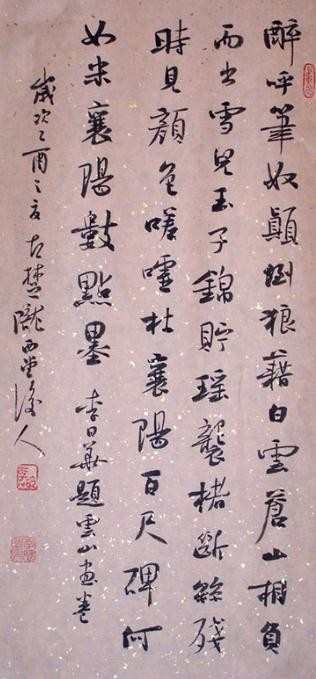 醉呼筆奴顛倒狼藉白雲蒼山相負
而出雪兒玉子錦貯瑶襲楮斷絲殘
時見顏色嘘杜襄陽百尺碑何
如米襄陽數點墨 李日華題雲山畫卷
歲次乙酉之古楚隴西堂後人